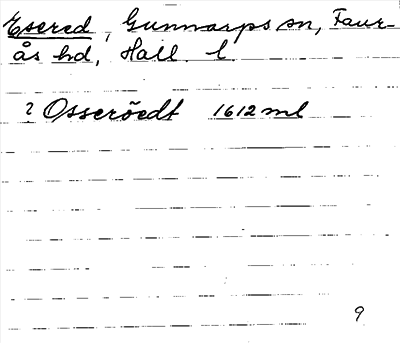 Esered, Gunnarps sn, Faur-
ås hd, Hall. l.
? Osseröedt 1612 ml
9